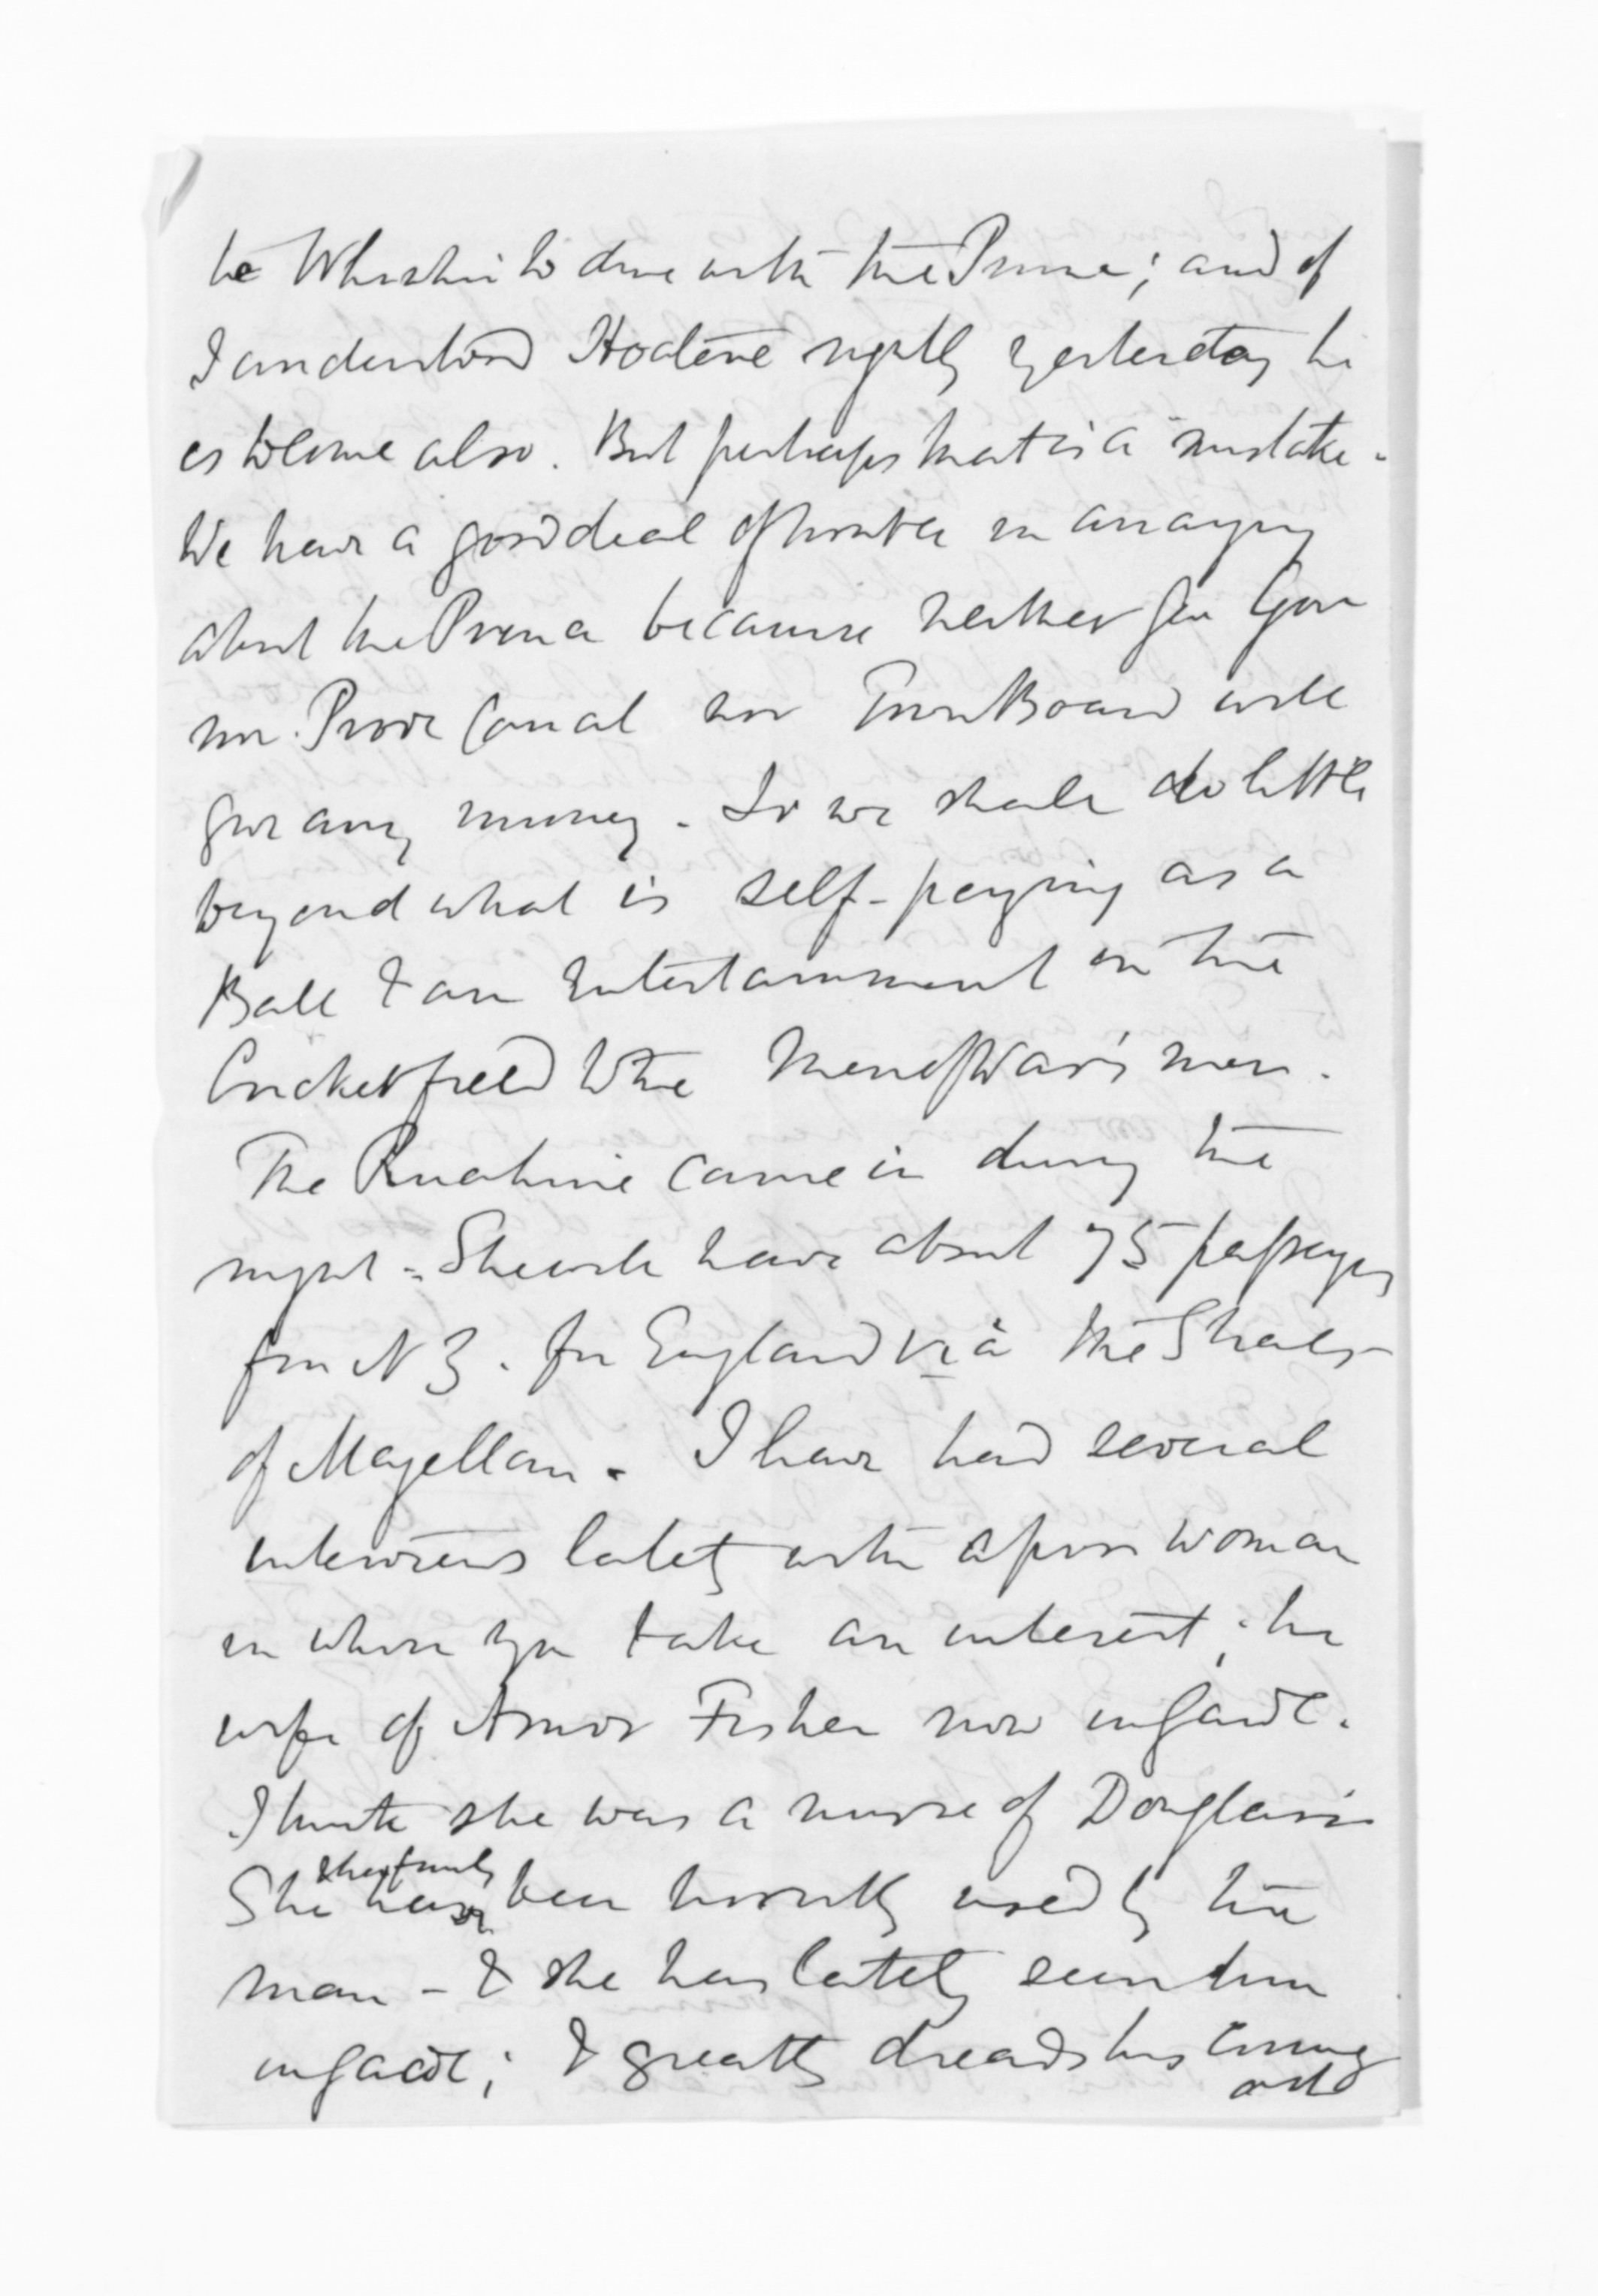 be Whishin to dine with the Prince; and if
I understood Hoatene rightly yesterday he
is to come also. But perhaps that is a mistake.
We have a good deal of trouble in arranging
about the Prince because neither Gen Govr
nor Provl Council nor Town Board will
give any money. So we shall do little
beyond what is self-paying as a
Ball & an Entertainment in the
Cricketfield to the Men of War's men.
The Ruahine came in during the
night. She will have about 75 passengers
from N Z. for England via the Straits
of Magellan. I have had several
interviews lately with a poor woman
in whom you take an interest; the
wife of Amos Fisher now in gaol.
I think she was a nurse of Douglas's
She & her family have been horribly used by the
man - & she has lately seen him
in gaol; & greatly dreads his coming
out